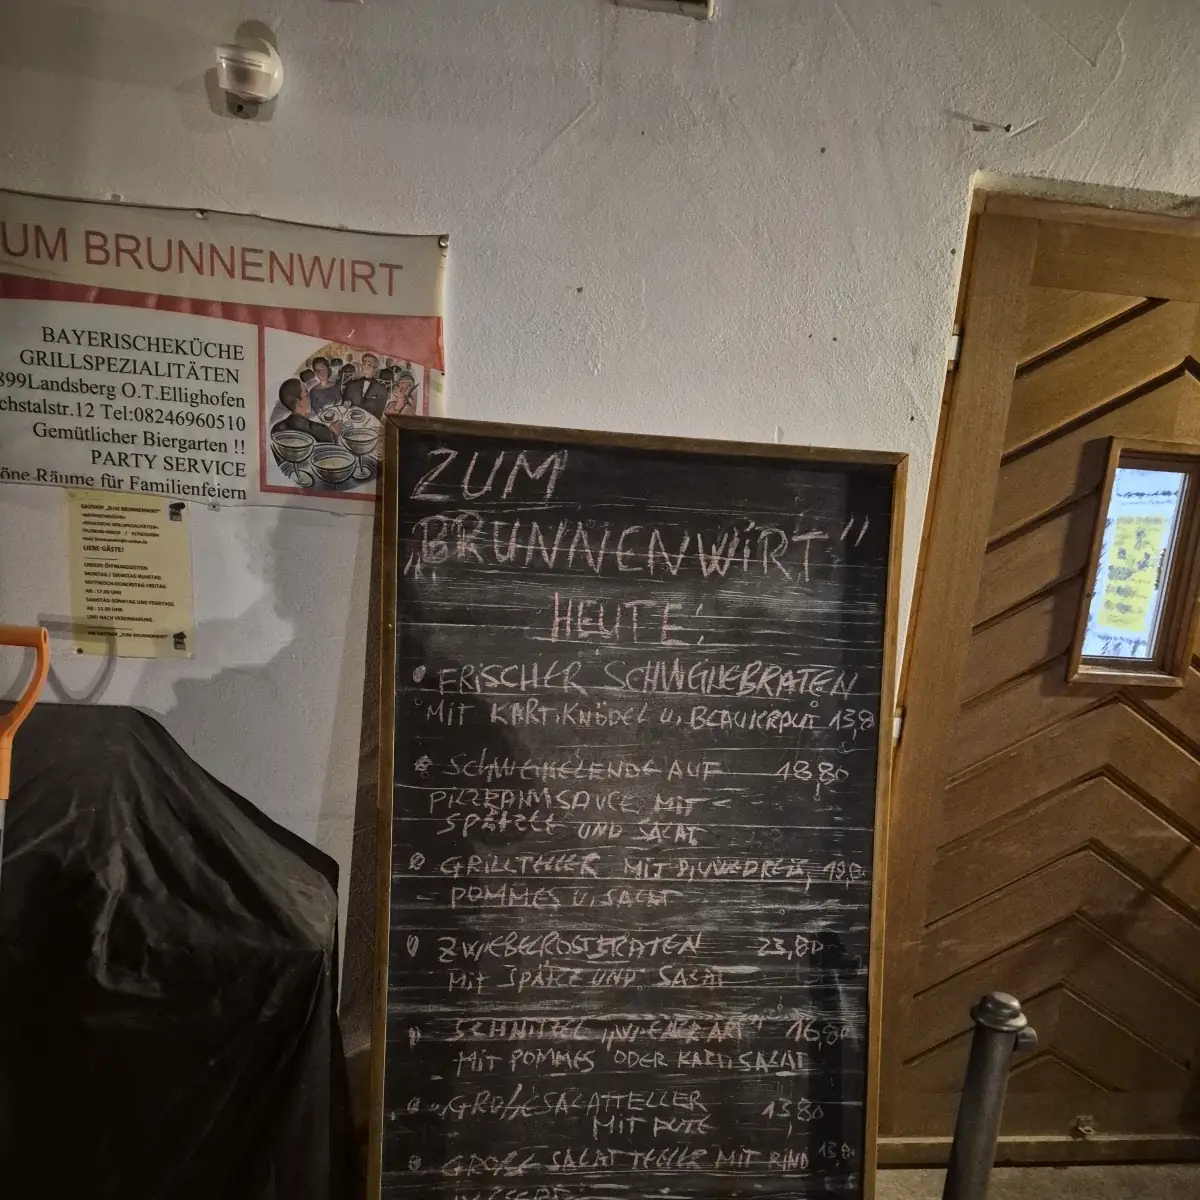 UM BRUNNENWIRT
BAYERISCHEKÜCHE
GRILLSPEZIALITÄTEN
899Landsberg O.T.Ellighofen
chstalstr.12 Tel:08246960510
Gemütlicher Biergarten !!
PARTY SERVICE
öne Räume für Familienfeiern
GASTHOF „ZUM BRUNNENWIRT"
LIEBE GÄSTE!
UNSERE ÖFFNUNGSZEITEN
MONTAG / DIENSTAG RUHETAG
MITTWOCH-DONERSTAG-FREITAG
AB : 17.00 UHR
SAMSTAG-SONNTAG UND FEIERTAGE
AB : 11.00 UHR
UND NACH VEREINBARUNG.
IHR GASTHOF „ZUM BRUNNENWIRT"
ZUM
„BRUNNENWIRT"
HEUTE:
FRISCHER SCHWEINEBRATEN
MIT KART.KNÖDEL U. BLAUKRAUT 13,8
AUF 18,80
MIT
SPÄTZLE UND SALAT
GRILLTELLER MIT
POMMES U. SALAT
ZWIEBELROSTBRATEN 23,80
MIT SPÄTZLE UND SALAT
SCHNITZEL „WIENER ART" 16,80
MIT POMMES ODER KART.SALAT
SALATTELLER 13,80
MIT PUTE
GROßE SALATTELLER MIT RIND 13,8